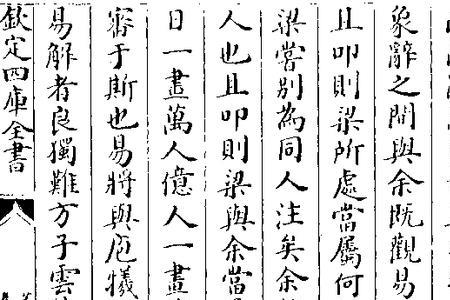 象辭之間與余既觀易
且叩則梁所處當屬何
梁嘗別為同人注矣余
人也且叩則梁與余當
日一畫萬人億人一畫
審于斯也易將與庖犧
易解者良獨難方子雲
欽定四庫全書